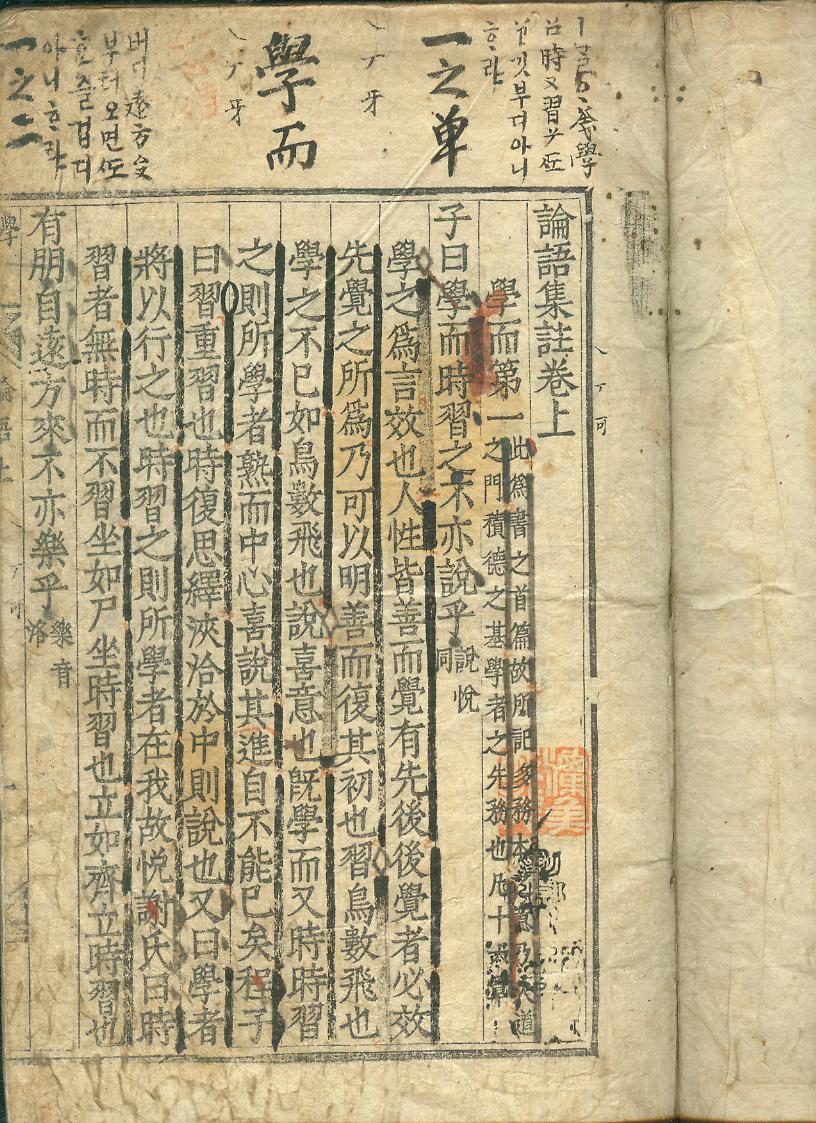 一之單
學而
一之二
論語集註卷上
學而第一
此爲書之首篇故所記多務本
之門積德之基學者之先務也凡十
子曰學而時習之不亦說乎
說悅
同
學之爲言效也人性皆善而覺有先後後覺者必效
先覺之所爲乃可以明善而復其初也習鳥數飛也
學之不已如鳥數飛也說喜意也旣學而又時時習
之則所學者熟而中心喜說其進自不能已矣程子
曰習重習也時復思繹浹洽於中則說也又曰學者
將以行之也時習之則所學者在我故悅謝氏曰時
習者無時而不習坐如尸坐時習也立如齊立時習也
有朋自遠方來不亦樂乎
樂音
洛